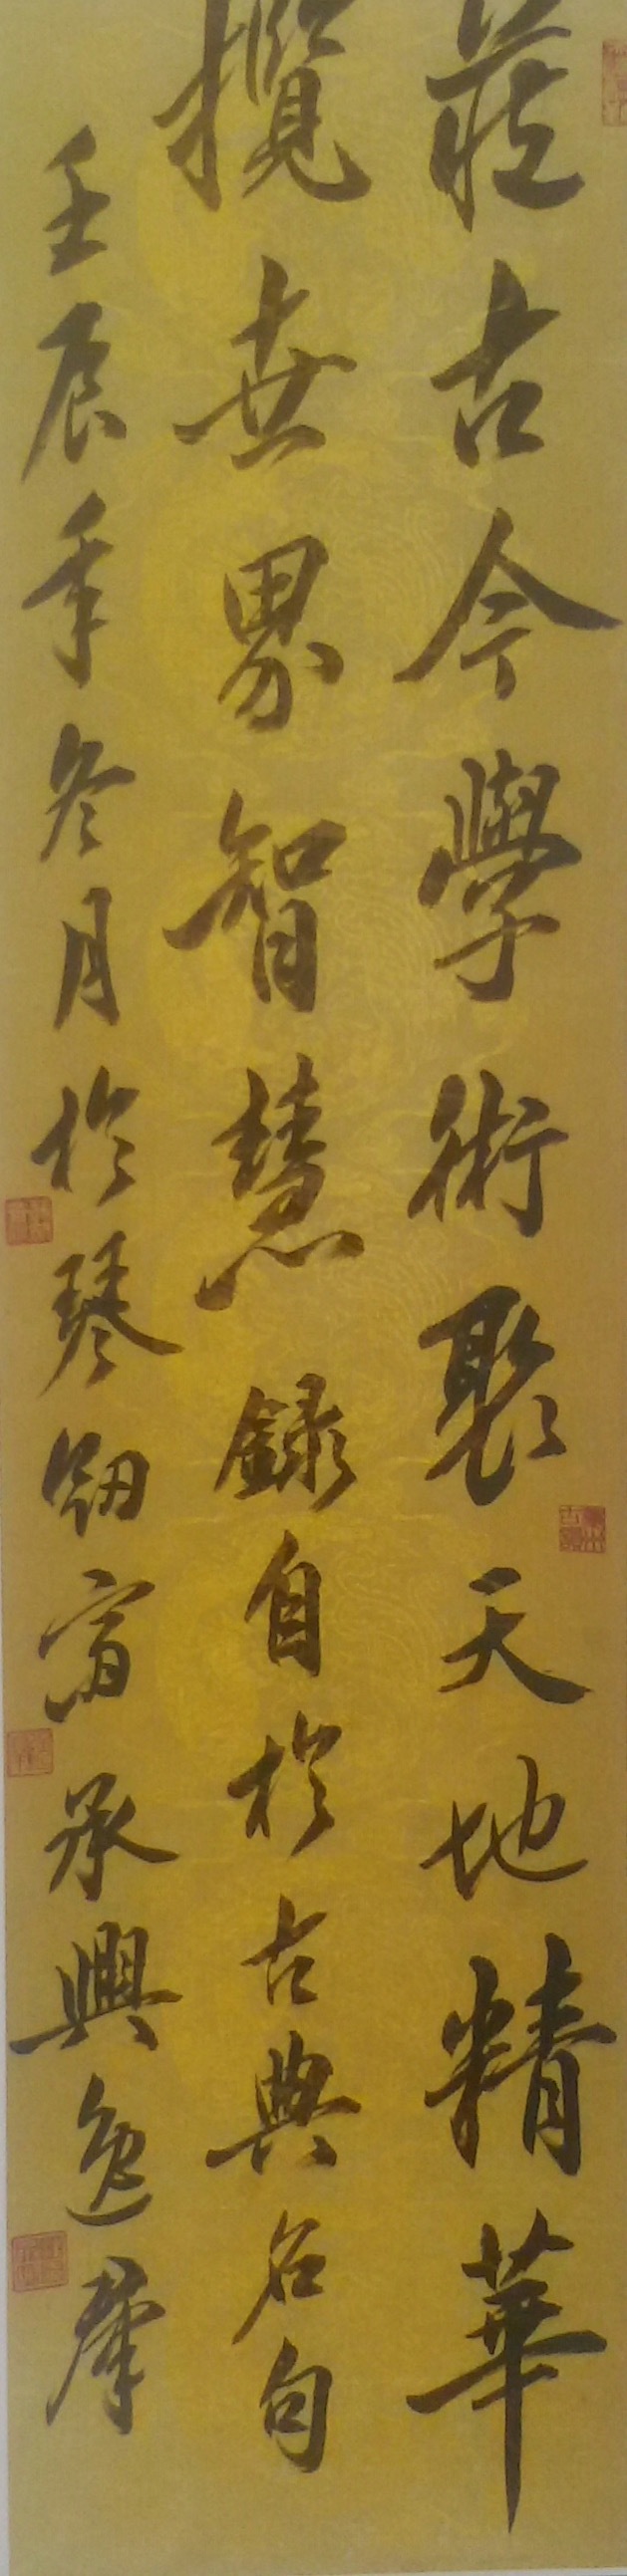 藏古今學術聚天地精華
攬世界智慧 錄自於古典名句
壬辰年冬月於琴劍齋 承興逸羣